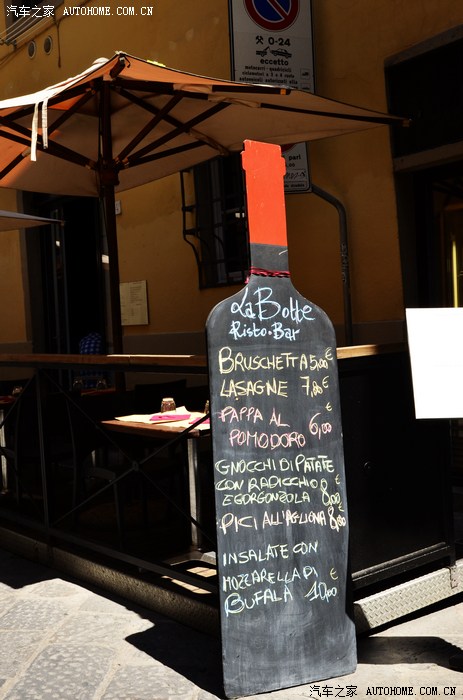 汽车之家 AUTOHOME.COM.CN
0-24
eccetto
La Botte
Risto-Bar
BRUSCHETTA 5,00 €
LASAGNE 7,00 €
PAPPA AL
POMODORO 6,00 €
GNOCCHI DI PATATE
CON RADICCHIO
E GORGONZOLA 8,00 €
PICI ALL'AGLIONA 8,00 €
INSALATE CON
MOZZARELLA DI
BUFALA 10,00 €
汽车之家 AUTOHOME.COM.CN